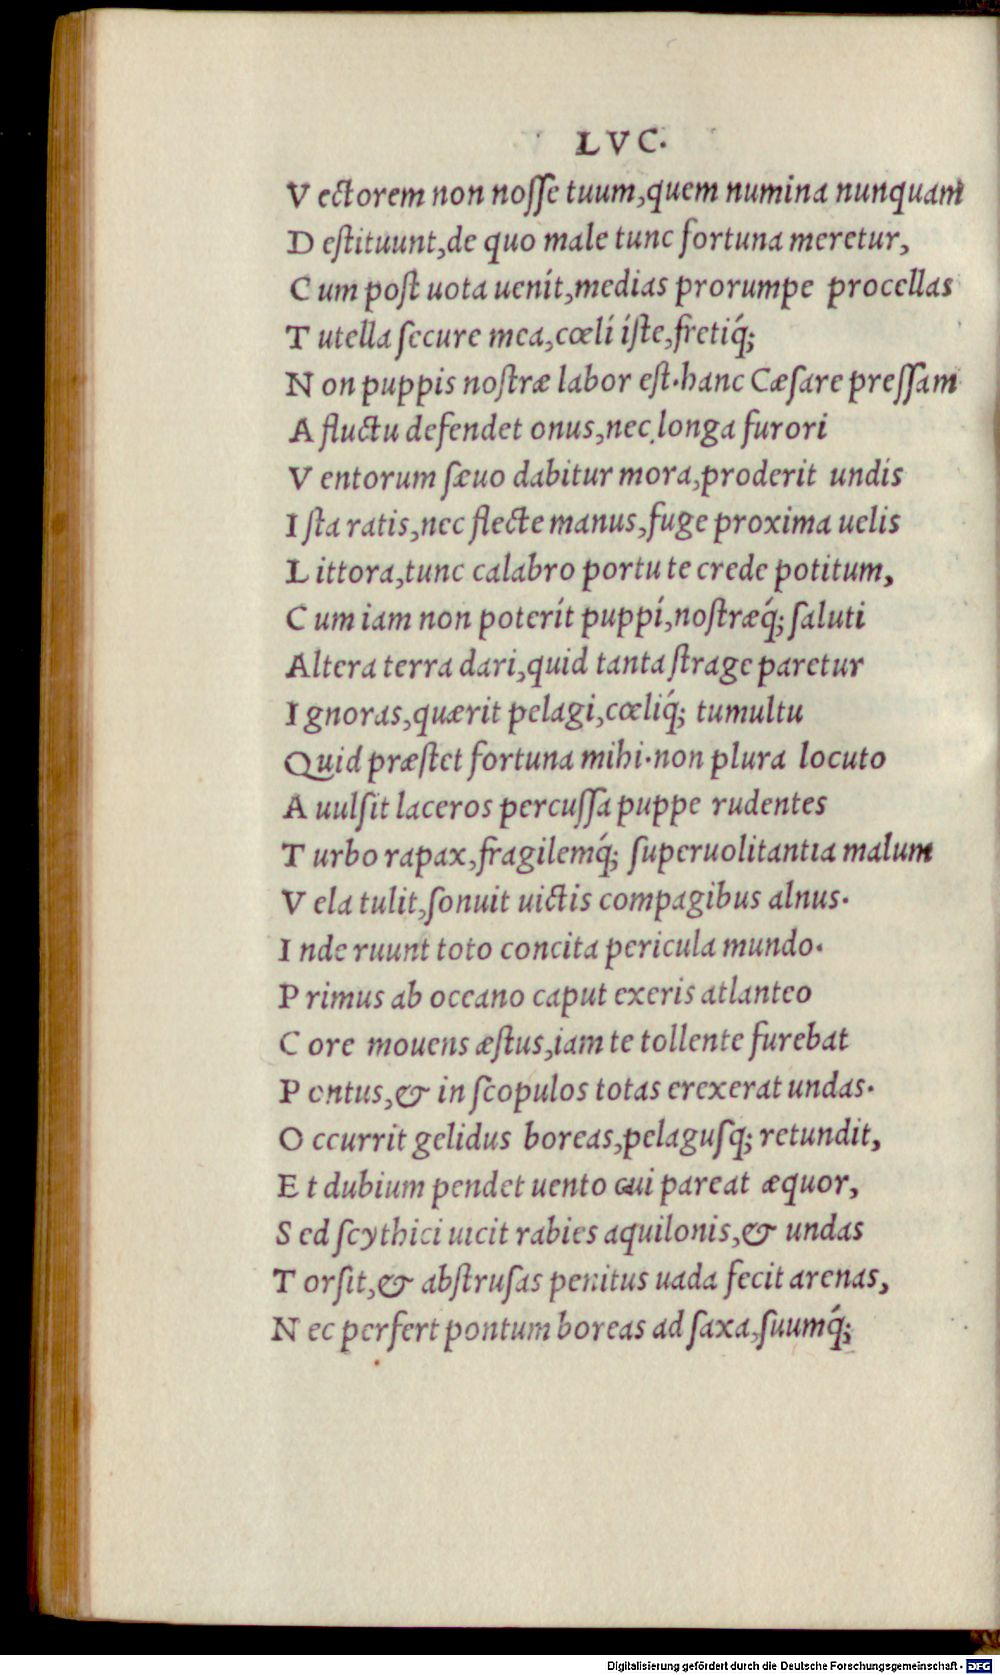 LVC.
V ectorem non noſſe tuum,quem numina nunquam
D eſtituunt,de quo male tunc fortuna meretur,
C um poſt uota uenit,medias prorumpe procellas
T utella ſecure mea,cœli iſte,fretiq́;
N on puppis noſtræ labor eſt.hanc Cæſare preſſam
A fluctu defendet onus,nec longa furori
V entorum ſæuo dabitur mora,proderit undis
I ſta ratis,nec flecte manus,fuge proxima uelis
L ittora,tunc calabro portu te crede potitum,
C um iam non poterit puppi,noſtræq́; ſaluti
Altera terra dari,quid tanta ſtrage paretur
I gnoras,quærit pelagi,cœliq́; tumultu
Quid præſtet fortuna mihi.non plura locuto
A uulſit laceros percuſſa puppe rudentes
T urbo rapax,fragilemq́; ſuperuolitantia malum
V ela tulit,ſonuit uictis compagibus alnus.
I nde ruunt toto concita pericula mundo.
P rimus ab oceano caput exeris atlanteo
C ore mouens æſtus,iam te tollente furebat
P ontus,& in ſcopulos totas erexerat undas.
O ccurrit gelidus boreas,pelaguſq; retundit,
E t dubium pendet uento cui pareat æquor,
S ed ſcythici uicit rabies aquilonis,& undas
T orſit,& abſtruſas penitus uada fecit arenas,
N ec perfert pontum boreas ad ſaxa,ſuumq́;
Digitalisierung gefördert durch die Deutsche Forschungsgemeinschaft - DFG